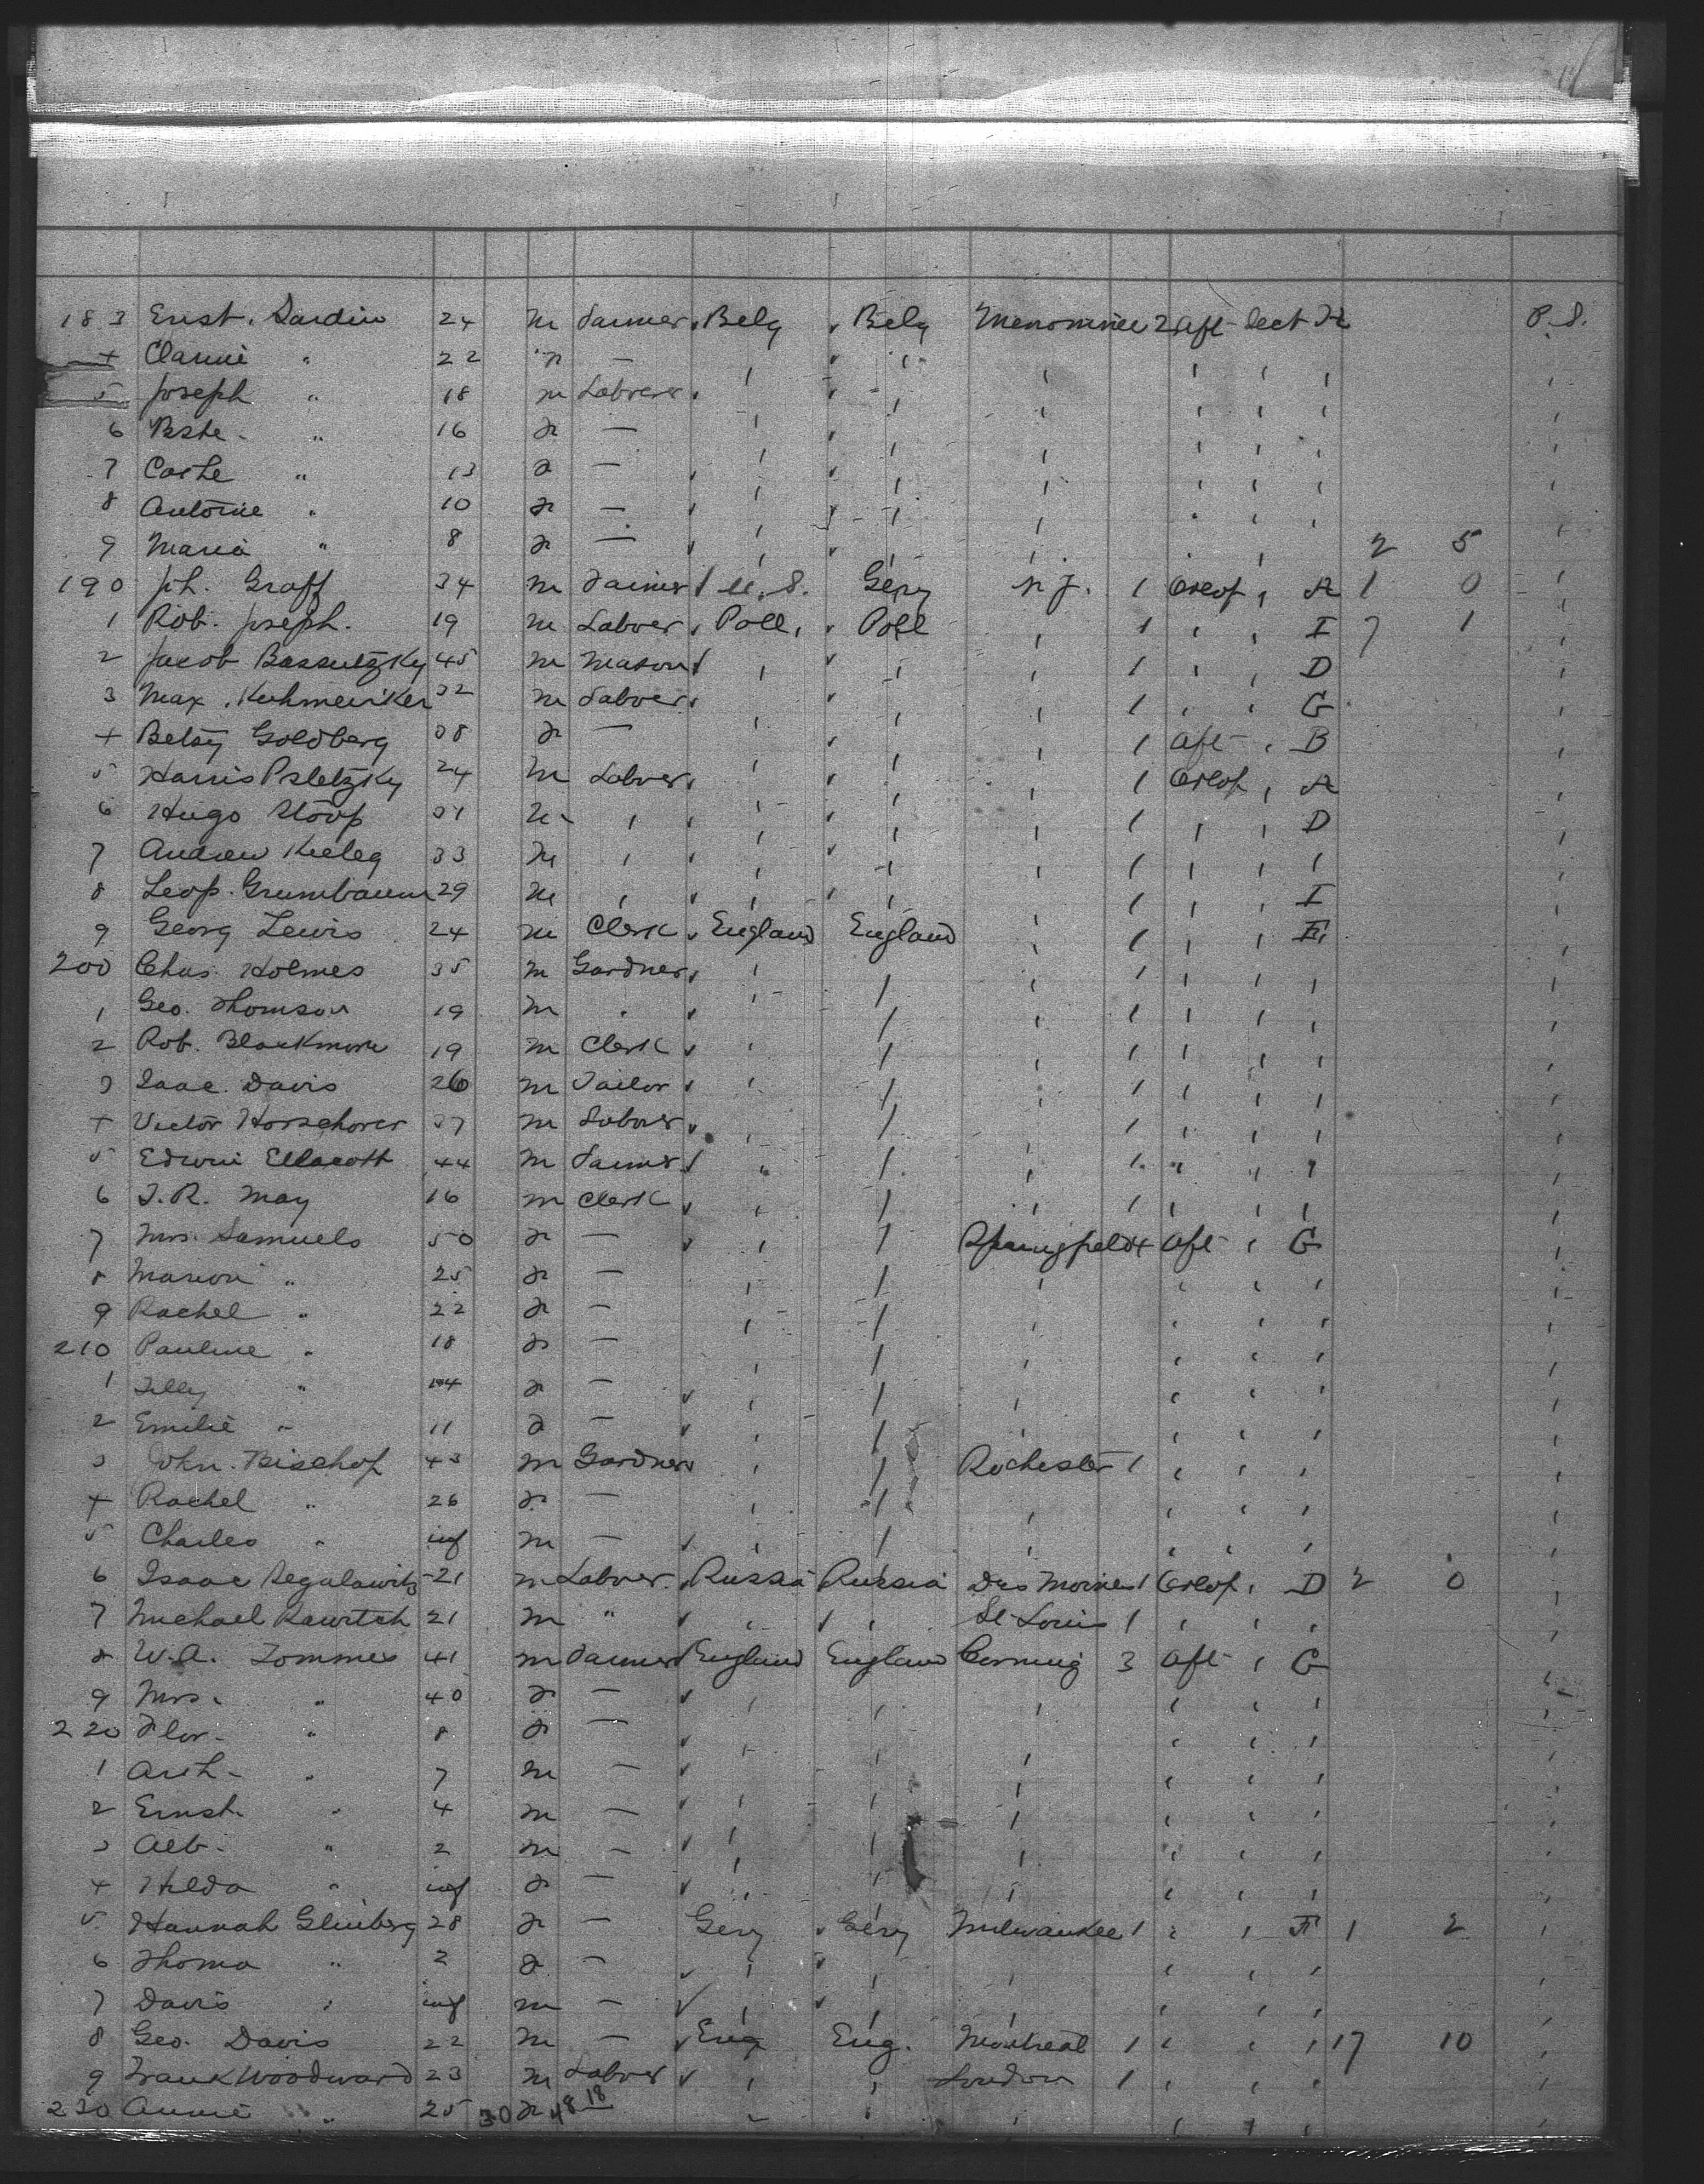 183 Ernst. Sardin 24 m Farmer Belg Belg Menominee 2 Aft Sect F P.S.
4 " 22 f — " "
5 Joseph " 18 m Labver " "
6 " 16 f — " "
7 " 13 f — " "
8 Antoine " 10 f — " "
9 Maria " 8 f — " " 2 5
190 Jh. Graff 34 m Farmer U.S. Gery N.J. 1 Orlop " A 1 0
1 Rob. Joseph. 19 m Labver Poll, Poll " 1 " " I 7 1
2 Jacob Bassutzky 45 m Mason " " " 1 " " D
3 Max. 32 m Labver " " " 1 " " G
4 Betsy Goldberg 38 f — " " " 1 Aft " B
5 Harris Psletzky 24 m Labver " " " 1 Orlop " A
6 Hugo Stoop 31 m " " " " 1 " " D
7 Andrew 33 m " " " " 1 " " "
8 Leop. Grumbaum 29 m " " " " 1 " " I
9 Georg Lewis 24 m Clerk England England " 1 " " E
200 Chas. Holmes 35 m Gardner " " " 1 " " "
1 Geo. Thomson 19 m " " " " 1 " " "
2 Rob. Blackmore 19 m Clerk " " " 1 " " "
3 Isaac Davis 26 m Tailor " " " 1 " " "
4 Victor 37 m Labver " " " 1 " " "
5 Edwin Ellacott 44 m Farmer " " " 1 " " "
6 T.R. May 16 m Clerk " " " 1 " " "
7 Mrs. Samuels 50 f — " " Springfield 4 Aft " G
8 Marion " 25 f — " " " " " "
9 Rachel " 22 f — " " " " " "
210 Pauline " 18 f — " " " " " "
1 Tilly " 14 f — " " " " " "
2 Emilie " 11 f — " " " " " "
3 John. Bischof 43 m Gardner " " Rochester 1 " " "
4 Rachel " 26 f — " " " " " "
5 Charles " inf m — " " " " " "
6 Isaac Segalawitz 21 m Labver Russia Russia Des Moines 1 Orlop " D 2 0
7 Michael Rawitch 21 m " " " St Louis 1 " " "
8 W.A. Tommes 41 m Farmer England England Corning 3 Aft " G
9 Mrs. " 40 f — " " " " " "
220 Flor. " 8 f — " " " " " "
1 Arth. " 7 m — " " " " " "
2 Ernst. " 4 m — " " " " " "
3 Alb. " 2 m — " " " " " "
4 Hilda " inf f — " " " " " "
5 Hannah Glinberg 28 f — Gery Gery Milwaukee 1 " " F 1 2
6 Thoma " 2 f — " " " " " "
7 Davis " inf m — " " " " " "
8 Geo. Davis 22 m — Eng Eng. Montreal 1 " " " 17 10
9 Frank Woodward 23 m Labver " " London 1 " " "
230 Annie " 25 30 f 48 18 " " " " " "